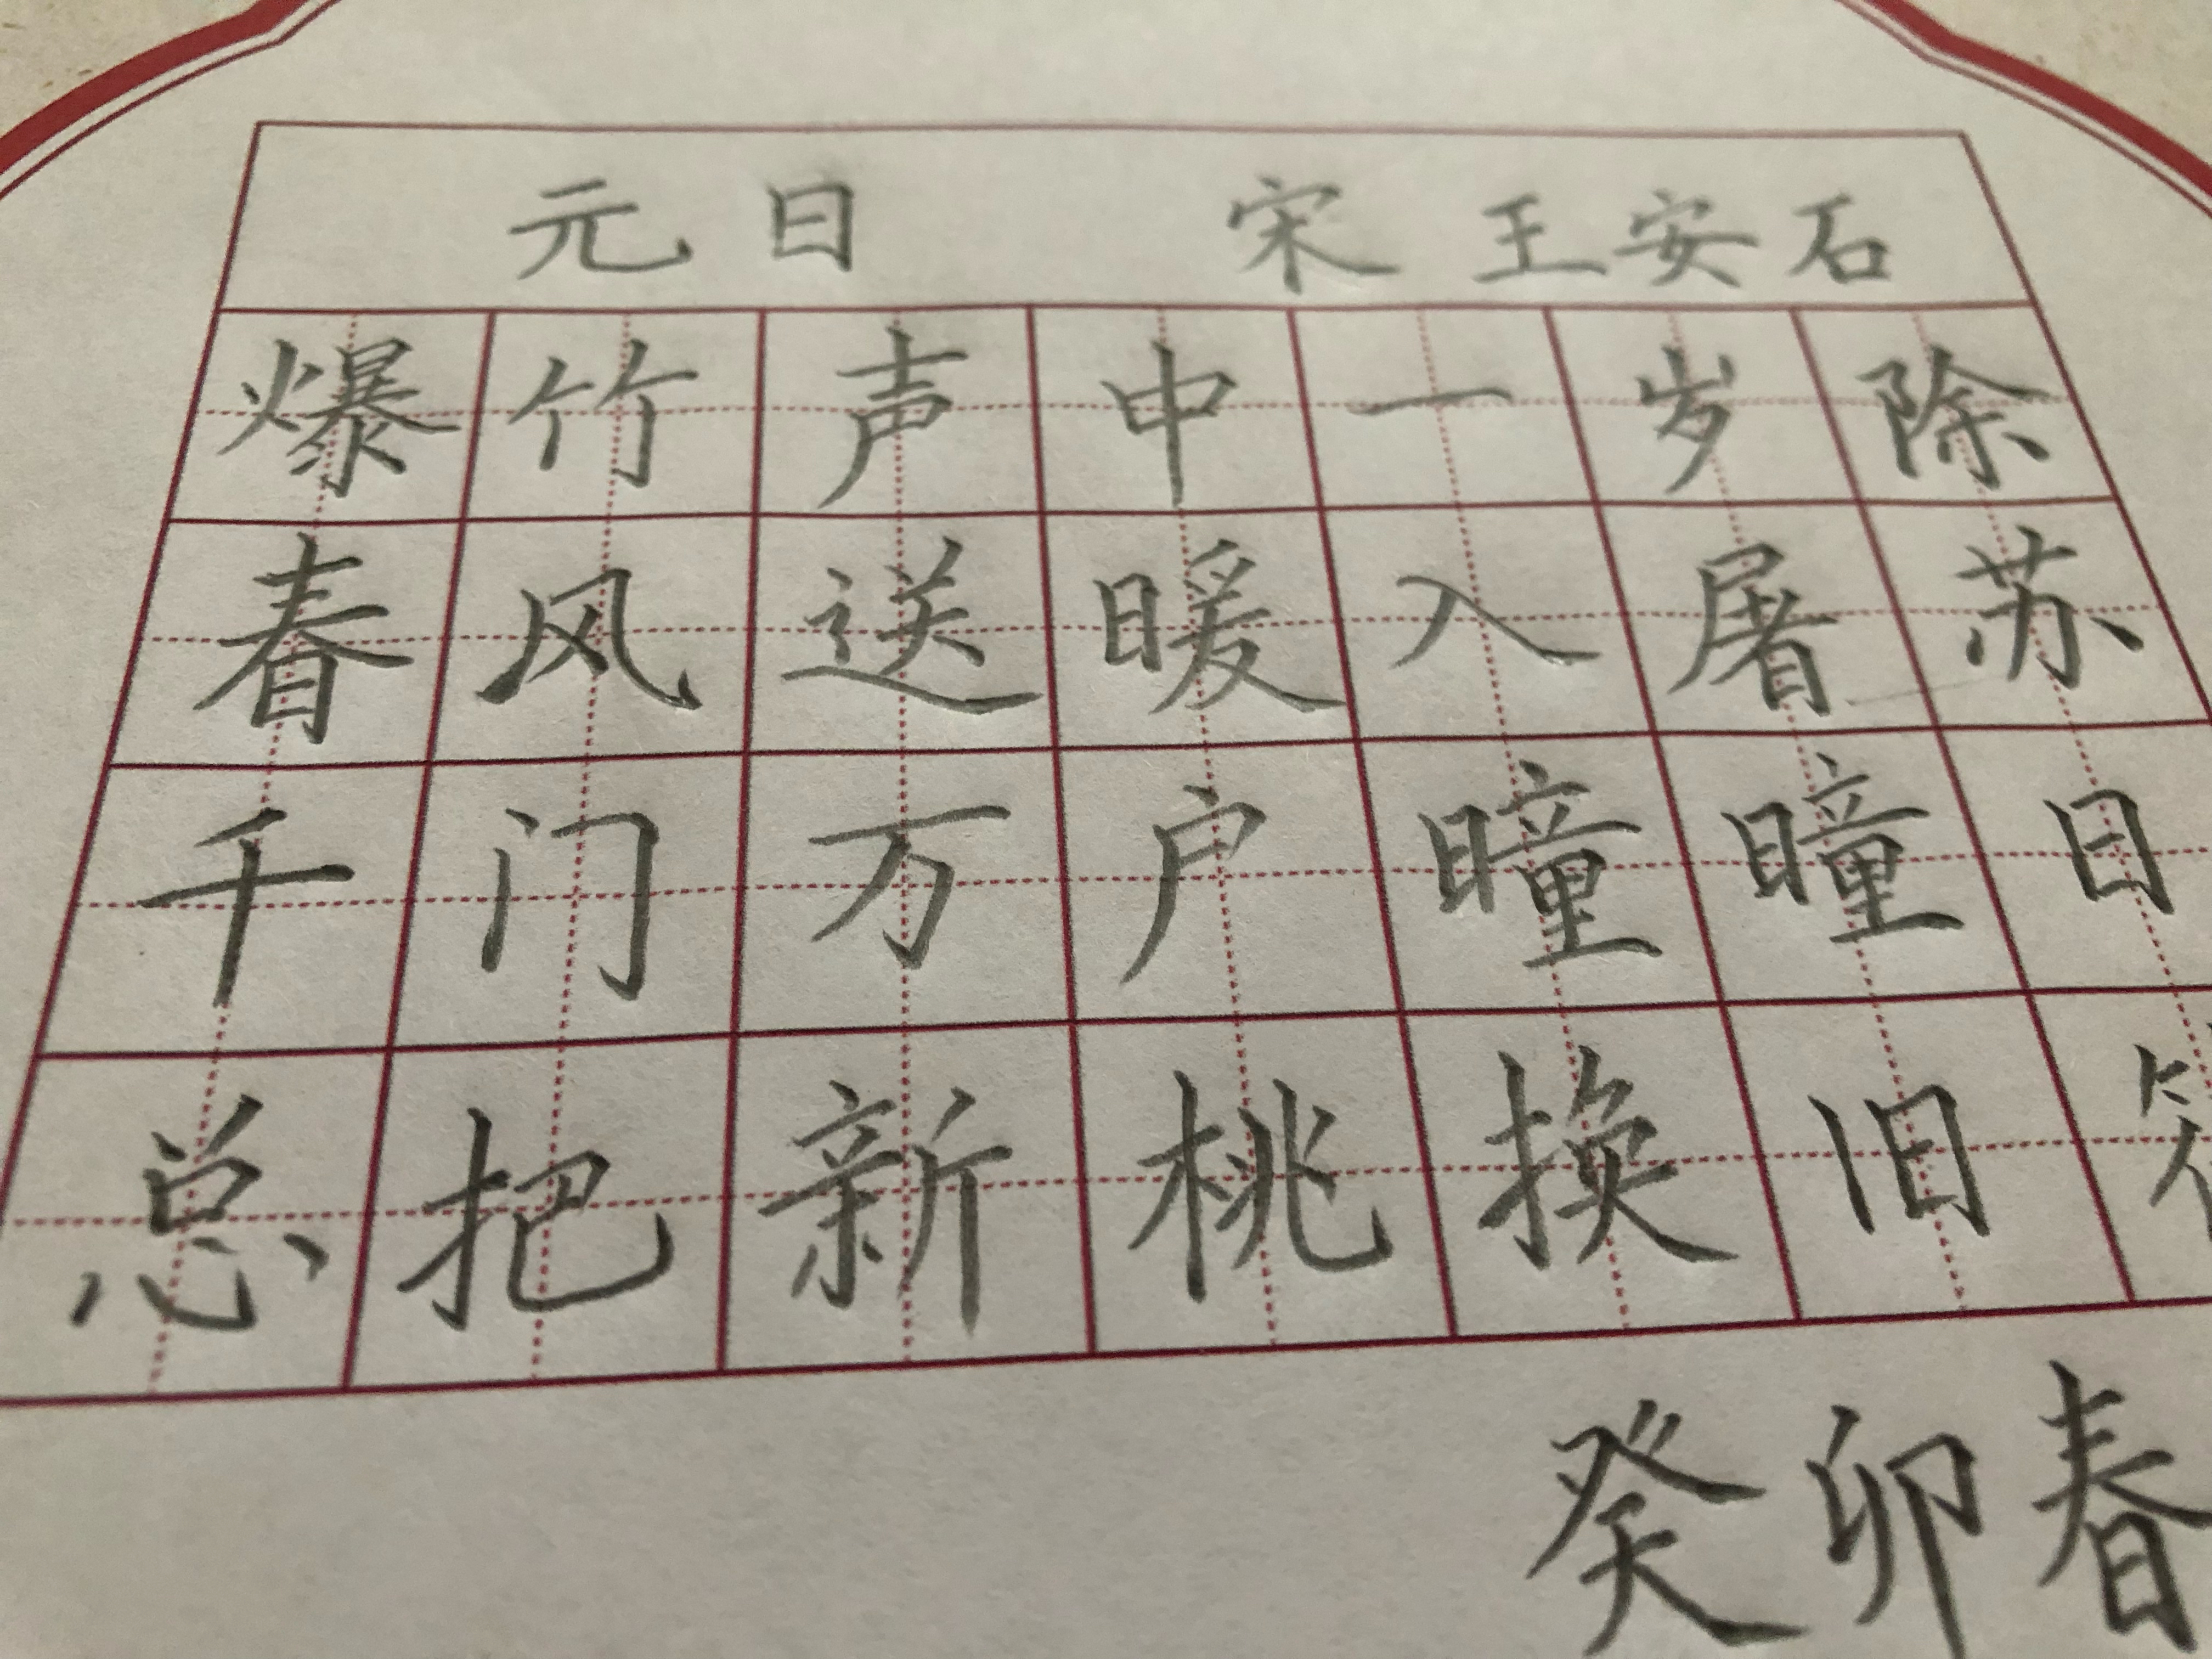 元日 宋 王安石
爆竹声中一岁除
春风送暖入屠苏
千门万户曈曈日
总把新桃换旧符
癸卯春